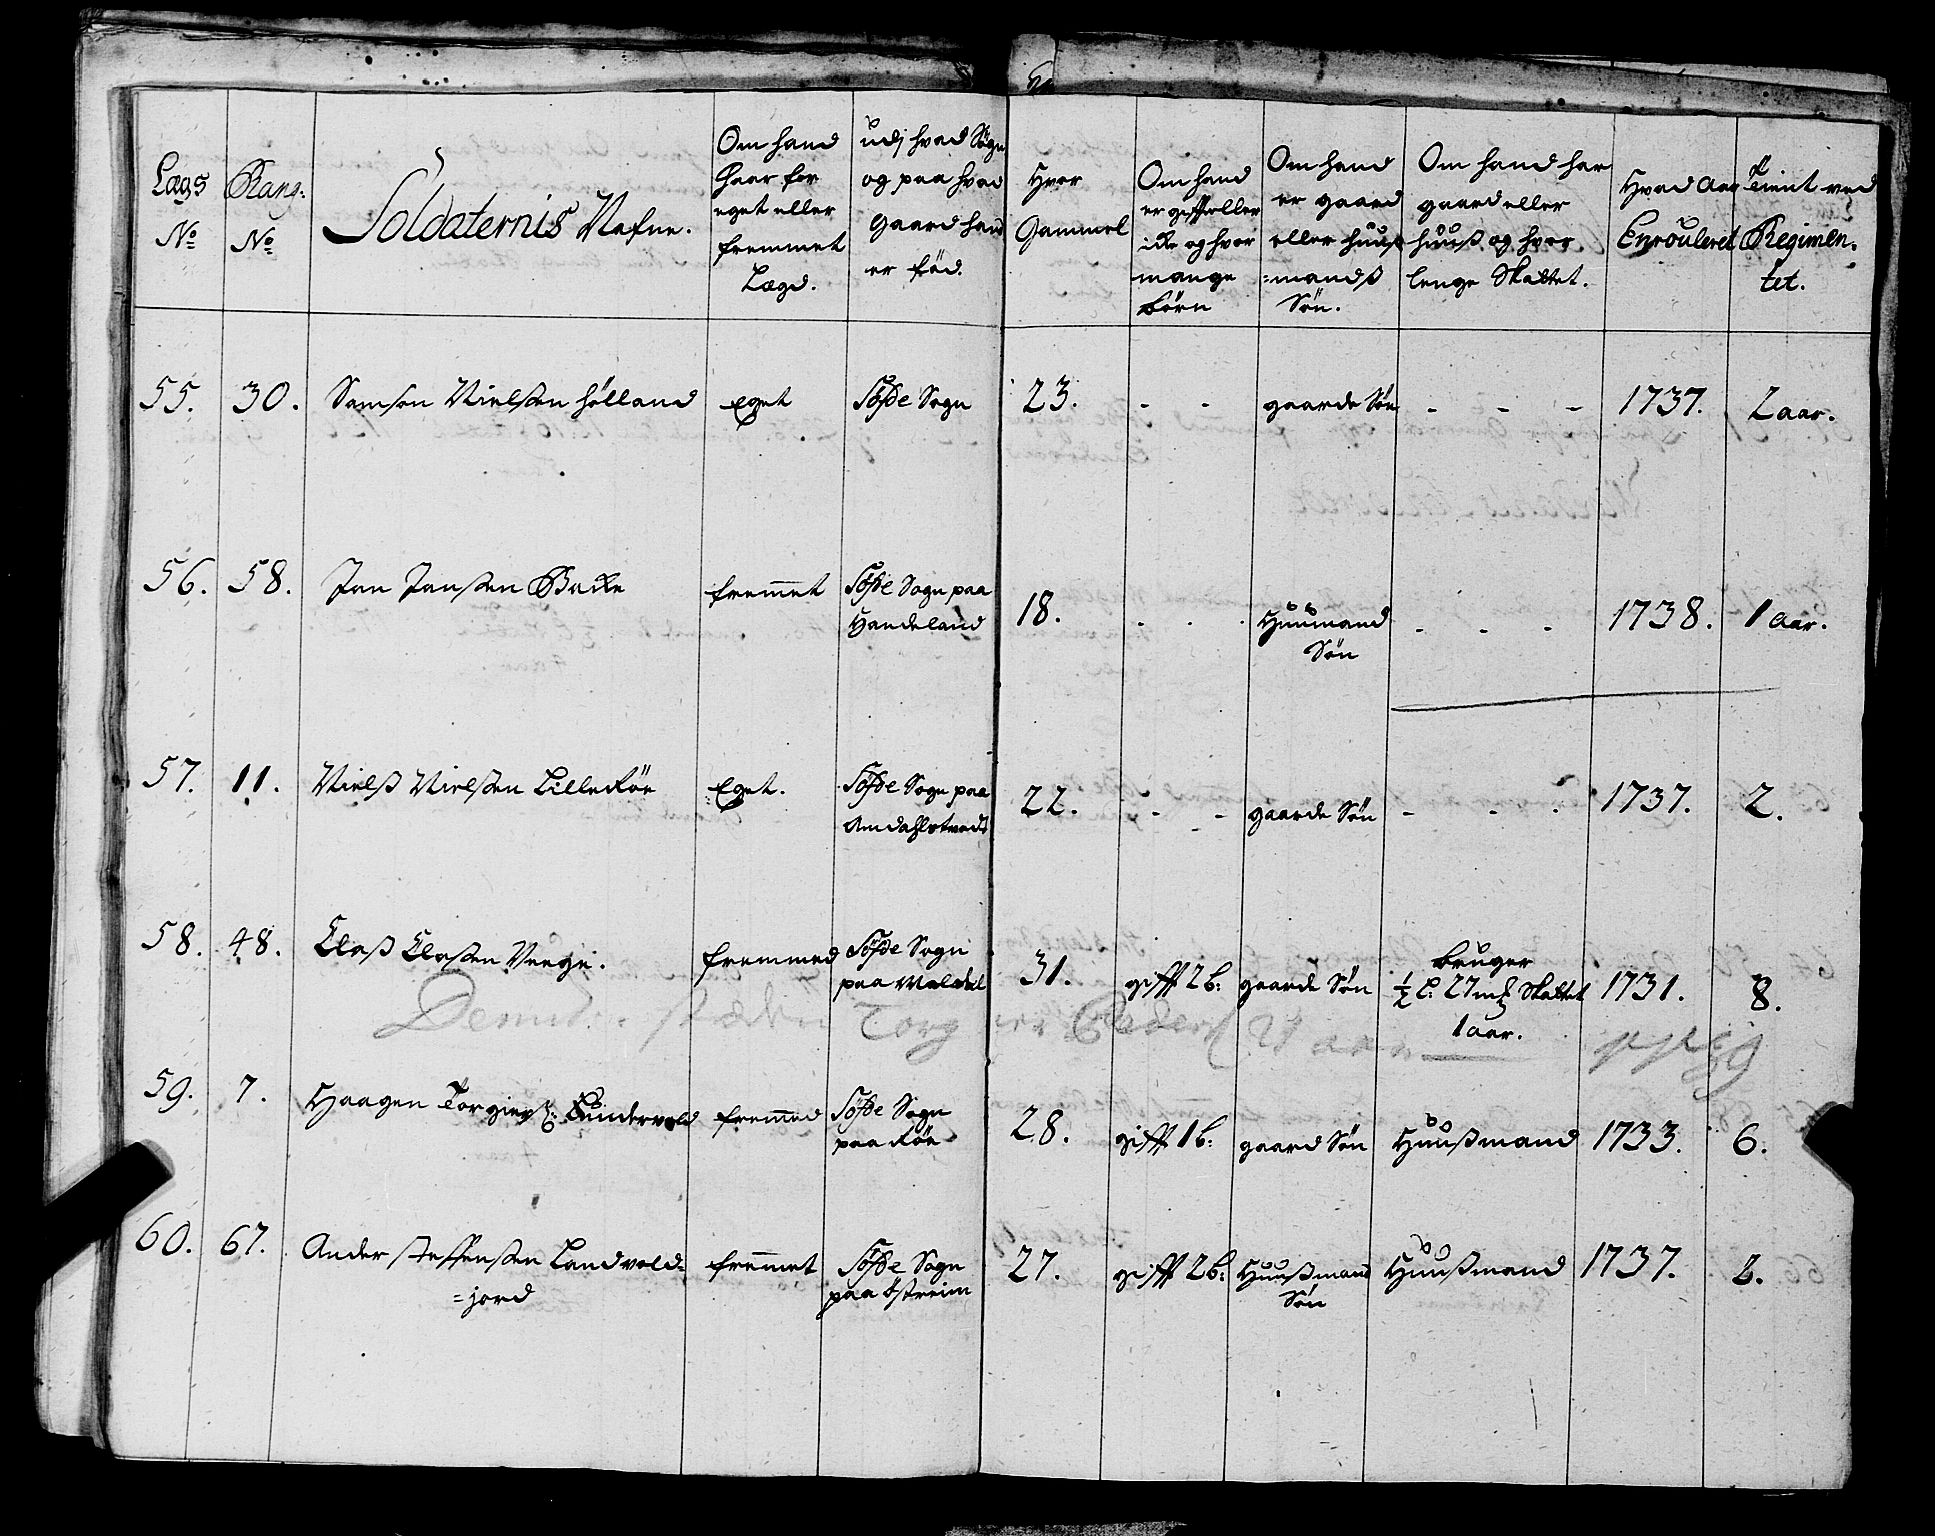 Lægs No | Rang: No | Soldaternis Nafne. | Om hand haar for eget eller fremmet Lægd. | udj hvad Sogn og paa hvad Gaard hand er föd. | Hvor Gammel | Om hand er gifft eller icke og hvor mange börn | Om hand er gaard eller huus =mandß Sön. | Om hand har gaard eller huuß og hvor lenge Skattet. | Hvad Aar Enrouleret | Tient ved Regimen- tet.
55. | 30. | Samson Nielßen hölland | Eget | Söfde Sogn | 23. | - - | gaarde Sön | - - - | 1737. | 2 aar.
56. | 58. | Jan Janßen Backe | fremmet | Söfde Sogn paa Handeland | 18. | - - - | Huumand Sön | - - - | 1738. | 1 aar.
57. | 11. | Nielß Nielßen Lilleköe | Eget. | Söfde Sogn paa Amdahlstvedt | 22. | - - | gaarde Sön | - - - | 1737. | 2.
58. | 48. | Claß Claßen Veege. | fremmed | Söfde Sogn paa | 31. | gifft 2 b: | gaarde Sön | bruger ½ L: 27 m Skattet 1 aar. | 1731. | 8.
Torg Peders
59. | 7. | Haagen Torgierß: | fremmed | Söfde Sogn paa Röe | 28. | gifft 1 b: | gaard Sön | Huußmand | 1733. | 6.
60. | 67. | Ander steffenßen Landvold= =jord | fremmet | Söfde Sogn paa östreim | 27. | gifft 2 b: | Huußmand Sön | Huußmand | 1737. | 2.